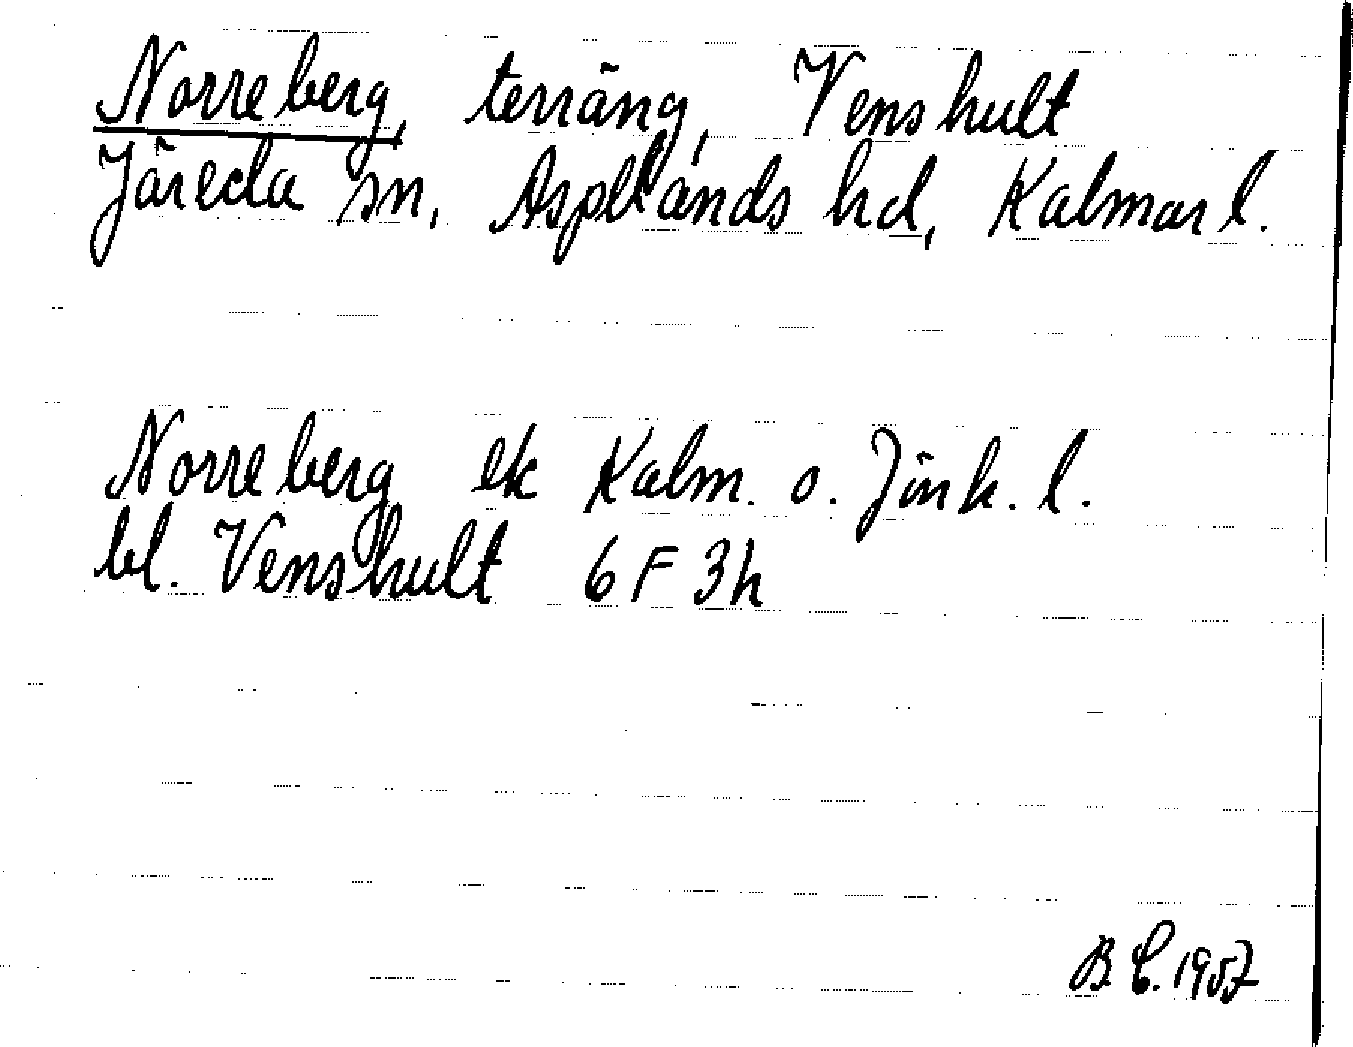 Norreberg, terräng, Venshult
Järeda sn, Aspelands hd, Kalmar l.
Norreberg ek Kalm. o. Jönk. l.
bl. Venshult 6 F 3h
B. E. 1957